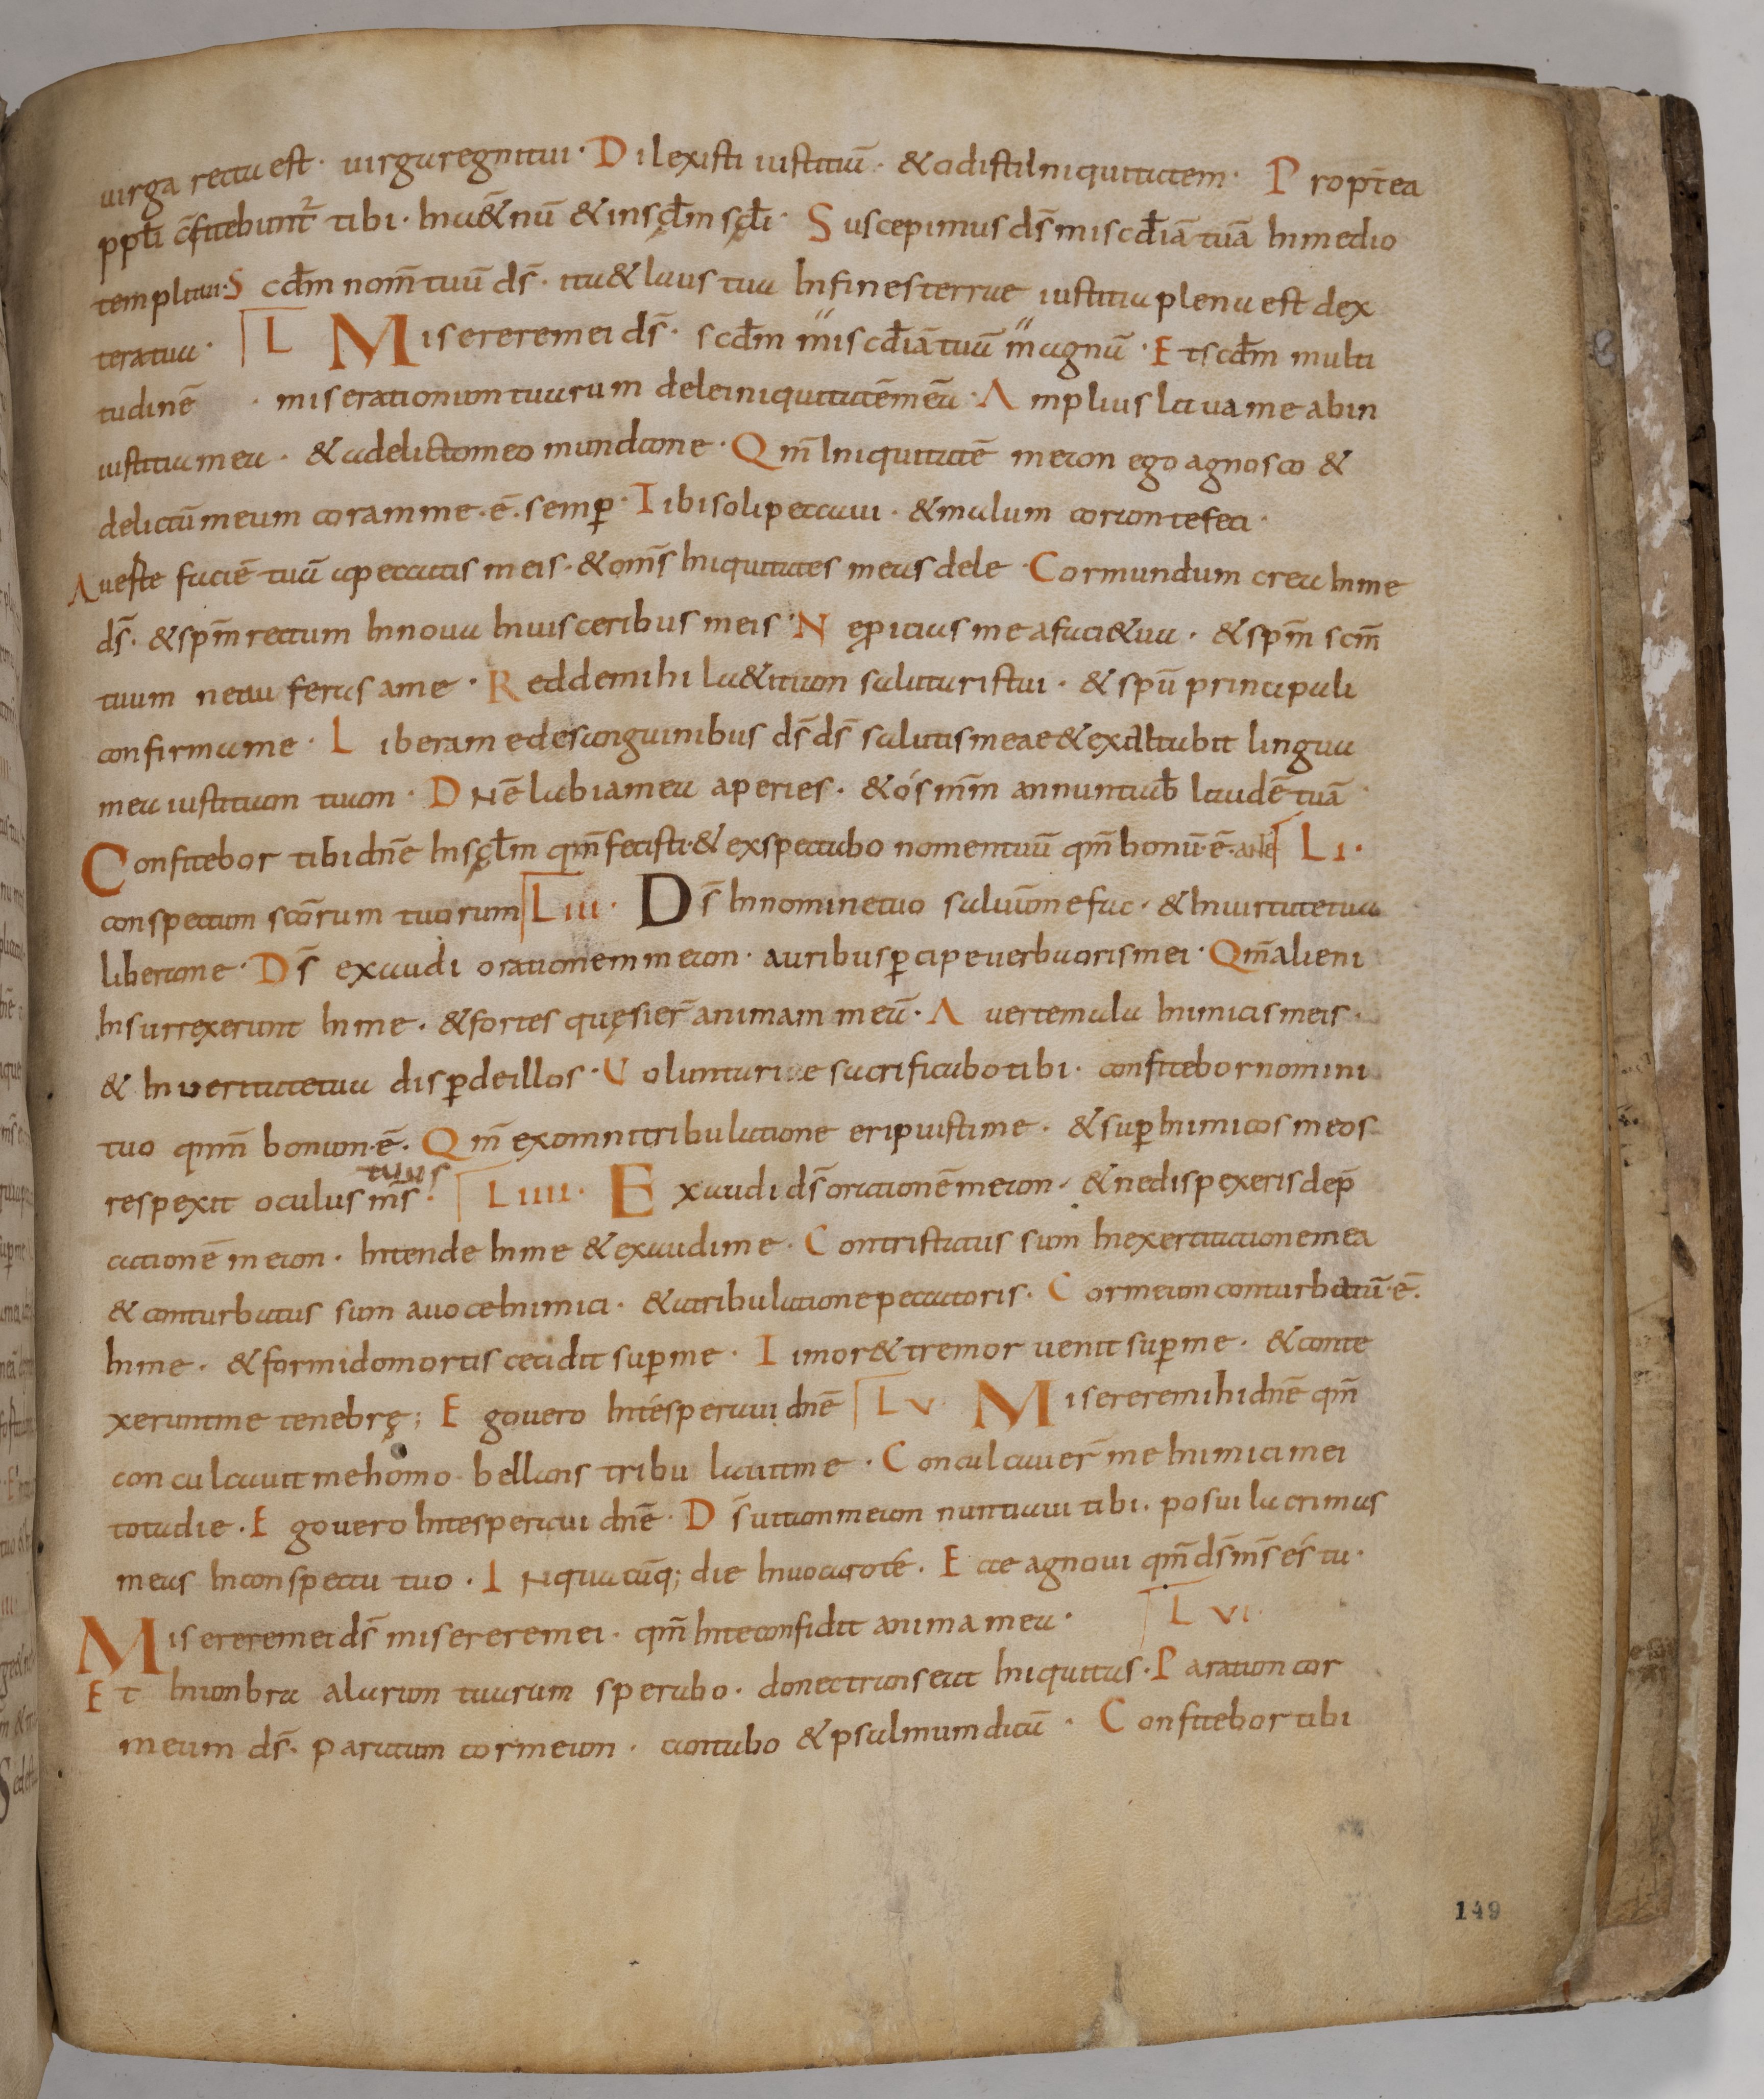 uirga recta est · uirga regni tui · Dilexisti iustitiā · & odisti Iniquitatem · Propt̄ea
ppl̄i c̄fitebunt̄² tibi · In a&̄nū & in sęcl̄m sęcl̄i · Suscepimus ds̄ miscđiā tuā In medio
templi tui · Scđm nom̄ tuū ds̄ · ita & laus tua In fines terrae iustitia plena est dex
tera tua · L Miserere mei ds̄ · scđm miscđiā tuā magnā · Et scđm multi
tudinē · miserationum tuarum dele iniquitatē meā · Amplius laua me ab in
iustitia mea · & a delicto meo munda me · Qm̄ Iniquitatē meam ego agnosco &
delictū meum coram me · ē · semꝑ · Tibi soli peccaui · & malum coram te feci ·
Auerte faciē tuā a peccatis meis · & om̄s Iniquitates meas dele · Cor mundum crea In me
ds̄ · & spm̄ rectum Innoua In uisceribus meis · Ne ꝓicias me a faci& ua · & spm̄ scm̄
tuum ne auferas a me · Redde mihi la&itiam salutaris tui · & spū principali
confirma me · Libera me de sanguinibus ds̄ ds̄ salutis meae & exaltabit lingua
mea iustitiam tuam · Dnē labia mea aperies · & ós mm̄ annuntiab̄ laudē tuā
Confitebor tibi dnē In sęcl̄m qm̄ fecisti · & exspectabo nomen tuū qm̄ bonū · ē · ante LI ·
conspectum scōrum tuorum LIII · Ds̄ In nomine tuo saluū me fac · & In uirtute tua
libera me · Ds̄ exaudi orationem meam · auribus ꝑcipe uerba oris mei · Qm̄ alieni
Insurrexerunt In me · & fortes quęsier̄ animam meā · Auerte mala Inimicis meis ·
& In ueritate tua disꝑde illos · Uoluntarie sacrificabo tibi · confitebor nomini
tuo qm̄m bonum · ē · Qm̄ ex omni tribulatione eripuisti me · & suꝑ Inimicos meos
tuus
respexit oculus ms̄ · LIIII · Exaudi ds̄ orationē meam · & ne dispexeris dep̄
cationē meam · Intende In me & exaudi me · Contristatus sum In exercitatione mea
& conturbatus sum a uoce Inimici · & a tribulatione peccatoris · Cor meum conturbatū · ē ·
In me · & formido mortis cecidit suꝑ me · Timor & tremor uenit suꝑ me · & conte
xerunt me tenebrę ; Ego uero In té speraui dnē LV Miserere mihi dnē qm̄
conculcauit me homo · bellans tribulauit me · Conculcauer̄ me Inimici mei
tota die · Ego uero In te speraui dnē · Ds̄ uitam meam nuntiaui tibi · posui lacrimas
meas In conspectu tuo · In quacūq; die Inuocaro te · Ecce agnoui qm̄ ds̄ ms̄ és tu ·
Miserere mei ds̄ miserere mei · qm̄ In te confidit anima mea · LVI
Et In umbra alarum tuarum sperabo · donec transeat Iniquitas · Paratum cor
meum ds̄ · paratum cor meum · cantabo & psalmum dicā · Confitebor tibi
149